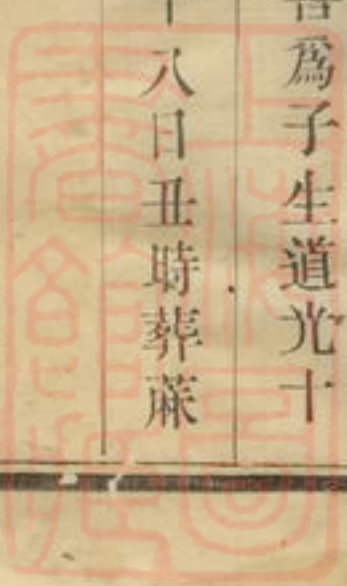 為子生道光十
八日丑時葬蔴